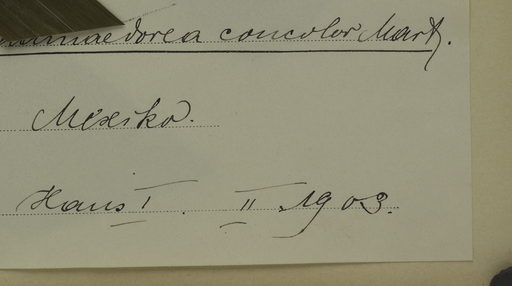 Chamaedorea concolor Mart.
Mexiko.
Haus I. II. 1903.